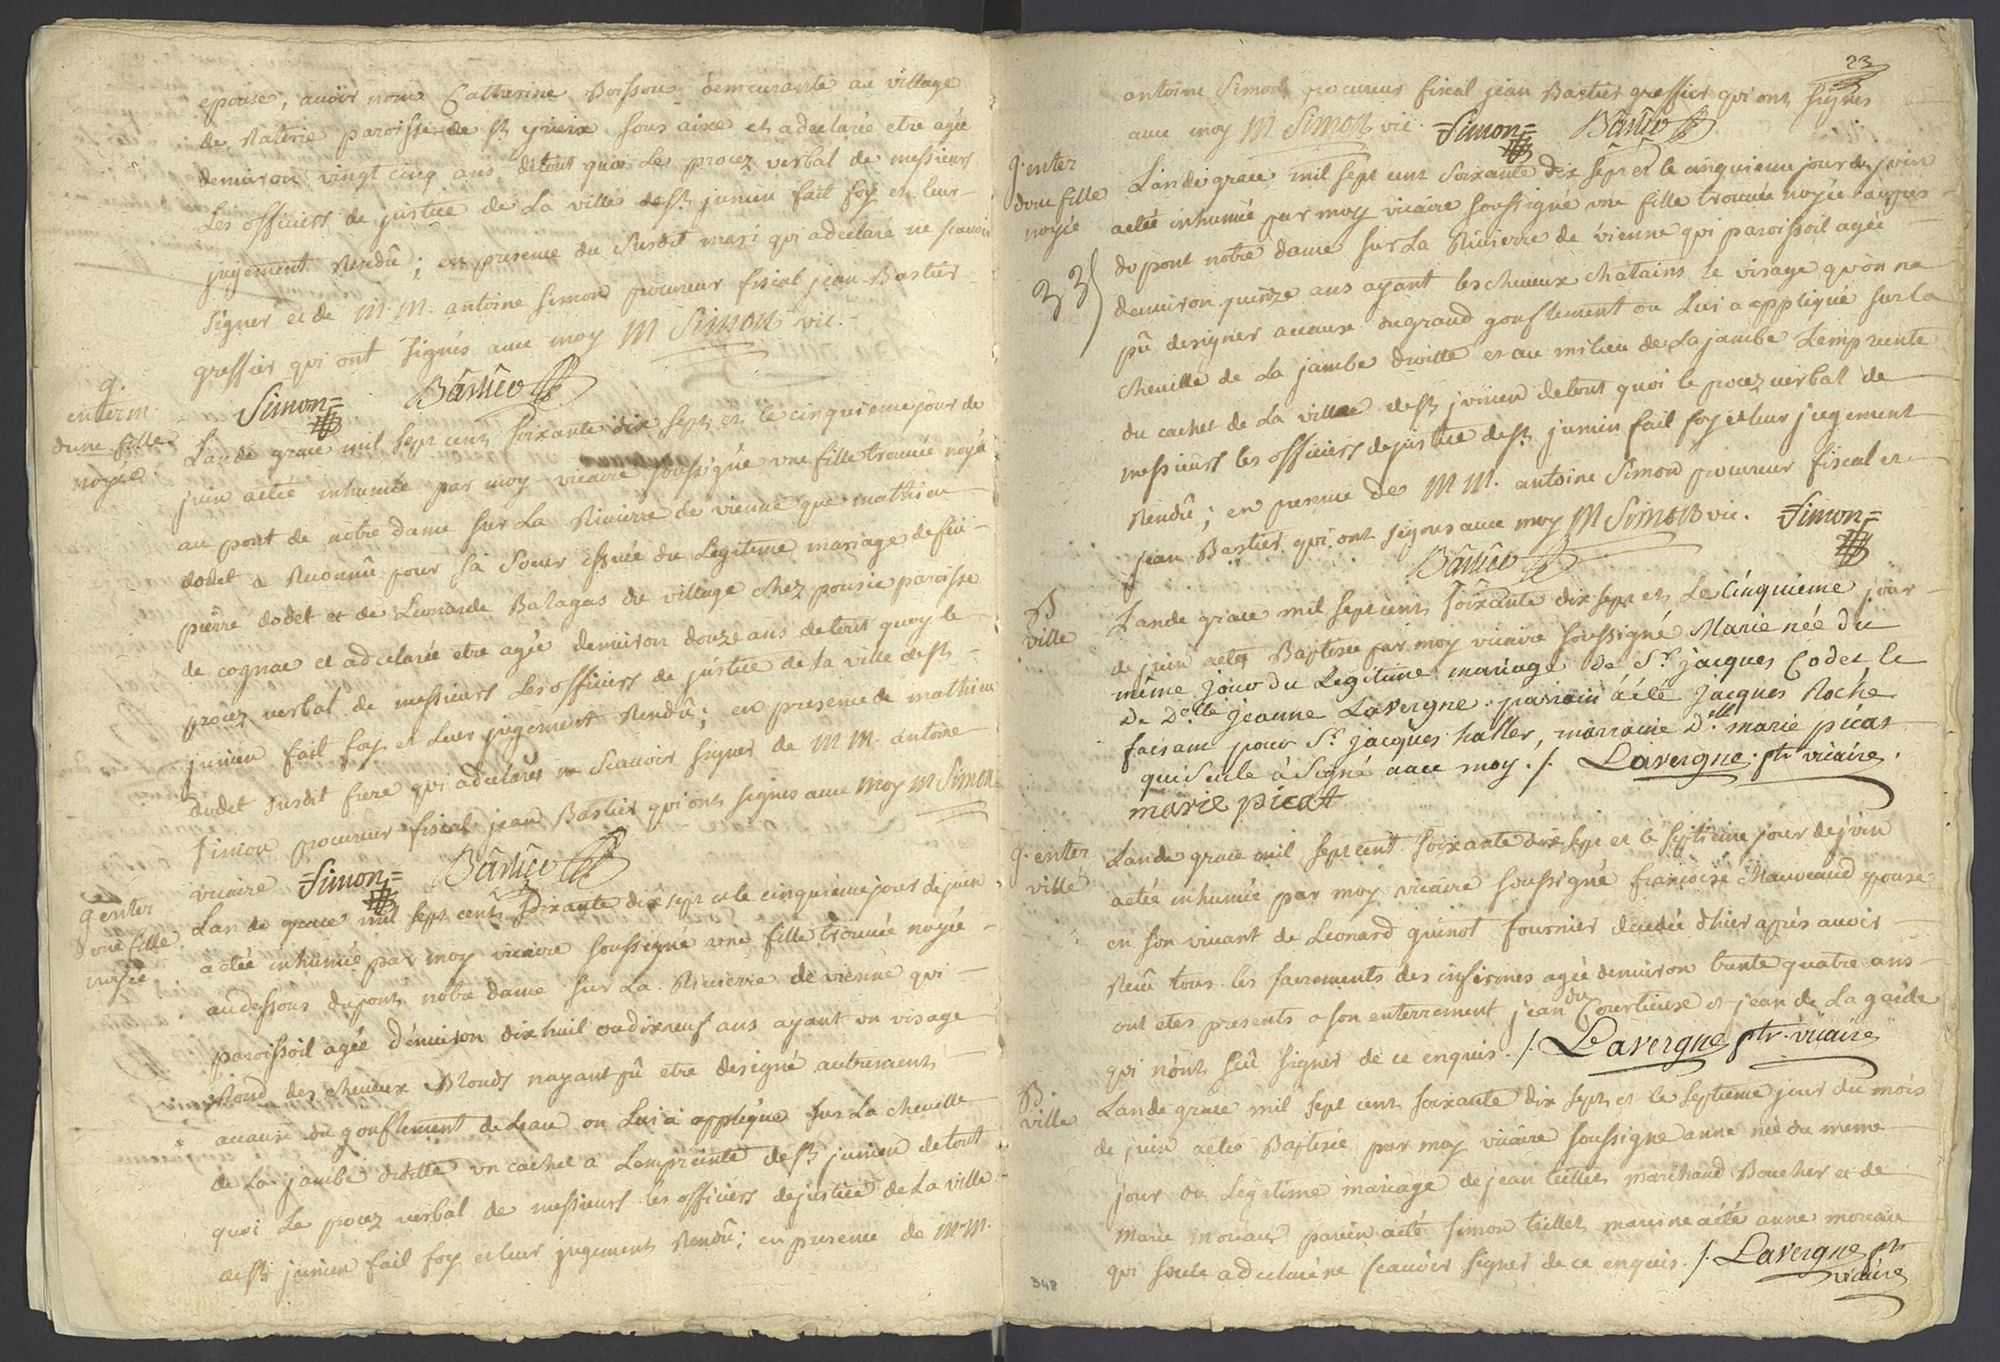 epouse, avoir nom Catherine Boisson demeurante au village
de paroisse de st yrieix sous aixe et a declarée etre agée
denviron vingt cinq ans detout quoi Le procez verbal de messieurs
Les officiers de justice de La ville de st junien fait foy et leur
jugement Rendû ; en presence du susdit mari qui a declaré ne scavoir
signer et de M.M. antoine simon procureur fiscal jean Bastier
greffier qui ont signés avec moy M Simon vic.
Simon Bâstier
q.
enterm.
dune fille
noyée
Lan de grace mil sept cent soixante dix sept et le cinquieme jour de
juin a eté inhumée par moy vicaire soussigné une fille trouvée noyée
au pont de notre dame sur La Rivierre de vienne que mathieu
dodet a Reconnû pour sa soeur issuée du Legitime mariage de feu
pierre dodet et de Leonarde Balagas du village chez pousie paroisse
de cognac et a declarée etre agée denviron douze ans de tout quoy le
procez verbal de messieurs Les officiers de justice de La ville de st
junien fait foy et Leur jugement Rendû ; en presence de mathieu
dodet susdit frere qui a declarer ne scavoir signer de M M. antoine
simon procureur fiscal jean Bastier qui ont signes avec moy M Simon
vicaire Simon Bâstier
q enter
une fille
noyée
Lan de grace mil sept cent soixante dix sept et le cinquieme jour de juin
a etée inhumée par moy vicaire soussigné une fille trouvée noyée
au dessous du pont notre dame sur La Rivierre de vienne qui
paroissoit agée d'environ dix huit ou dix neuf ans ayant un visage
Rond des cheveux Blonds nayant pû etre designé autrement
acause du gonflement de Leau on Lui a appliqué sur La cheville
de La jambe droitte un cachet a Lempreinte de st junien de tout
quoi Le procez verbal de messieurs les officiers de justice de La ville
de st junien fait foy et leur jugement Rendû ; en presence de M M.
23
antoine Simon procureur fiscal jean Bastier greffier qui ont signes
avec moy M Simon vic. Simon Bâstier
q. enter
dune fille
noyée
33
Lan de grace mil sept cent soixante dix sept et le cinquieme jour de juin
a etée inhumée par moy vicaire soussigné une fille trouvée noyée aupres
du pont notre dame sur La Rivierre de vienne qui paroissoit agée
denviron quinze ans ayant les cheveux chatains le visage qu'on na
pû designer acause du grand gonflement on Lui a appliqué sur la
cheville de La jambe droitte et au milieu de La jambe Lempreinte
du cachet de La ville de st junien de tout quoi le procez verbal de
messieurs les officiers de justice de st junien fait foy et leur jugement
Rendû ; en presence de M M. antoine Simon procureur fiscal et
jean Bastier qui ont signes avec moy M Simon vic. Simon
Bâstier
B
ville
Lan de grace mil sept cent soixante dix sept et Le Cinquieme jour
de juin a eté Baptisée par moy vicaire soussigné Marie née du
même jour du Légitime mariage de Sr. jacques Codet et
De Delle jeanne Lavergne. parrain à été jacques Roche
faisant pour Sr. jacques haller, marraine Dlle marie picat
qui Seule à Signé avec moy ./. Lavergne ptr vicaire.
marie picat
q. enter
ville
Lan de grace mil sept cent soixante dix sept et le septieme jour de juin
a etée inhumée par moy vicaire soussigné françoise Mauveaud epouse
en son vivant de Leonard quinot fournier decedée d'hier aprés avoir
Reçu tous les sacrements des infirmes agée denviron trente quatre ans
ont etes presents a son enterrement jean du Courtieux et jean de La garde
qui n'ont sçû signer de ce enquis ./. Lavergne ptr. vicaire
B.
ville
Lan de grace mil sept cent soixante dix sept et le septieme jour du mois
de juin a etée Baptisée par moy vicaire soussigne anne née du meme
jour du Legitime mariage de jean teillet marchand Boucher et de
Marie moreau parein a eté simon teillet mareine a eté anne moreau
qui seule a declaré ne scavoir signer de ce enquis ./. Lavergne ptr
vicaire
348